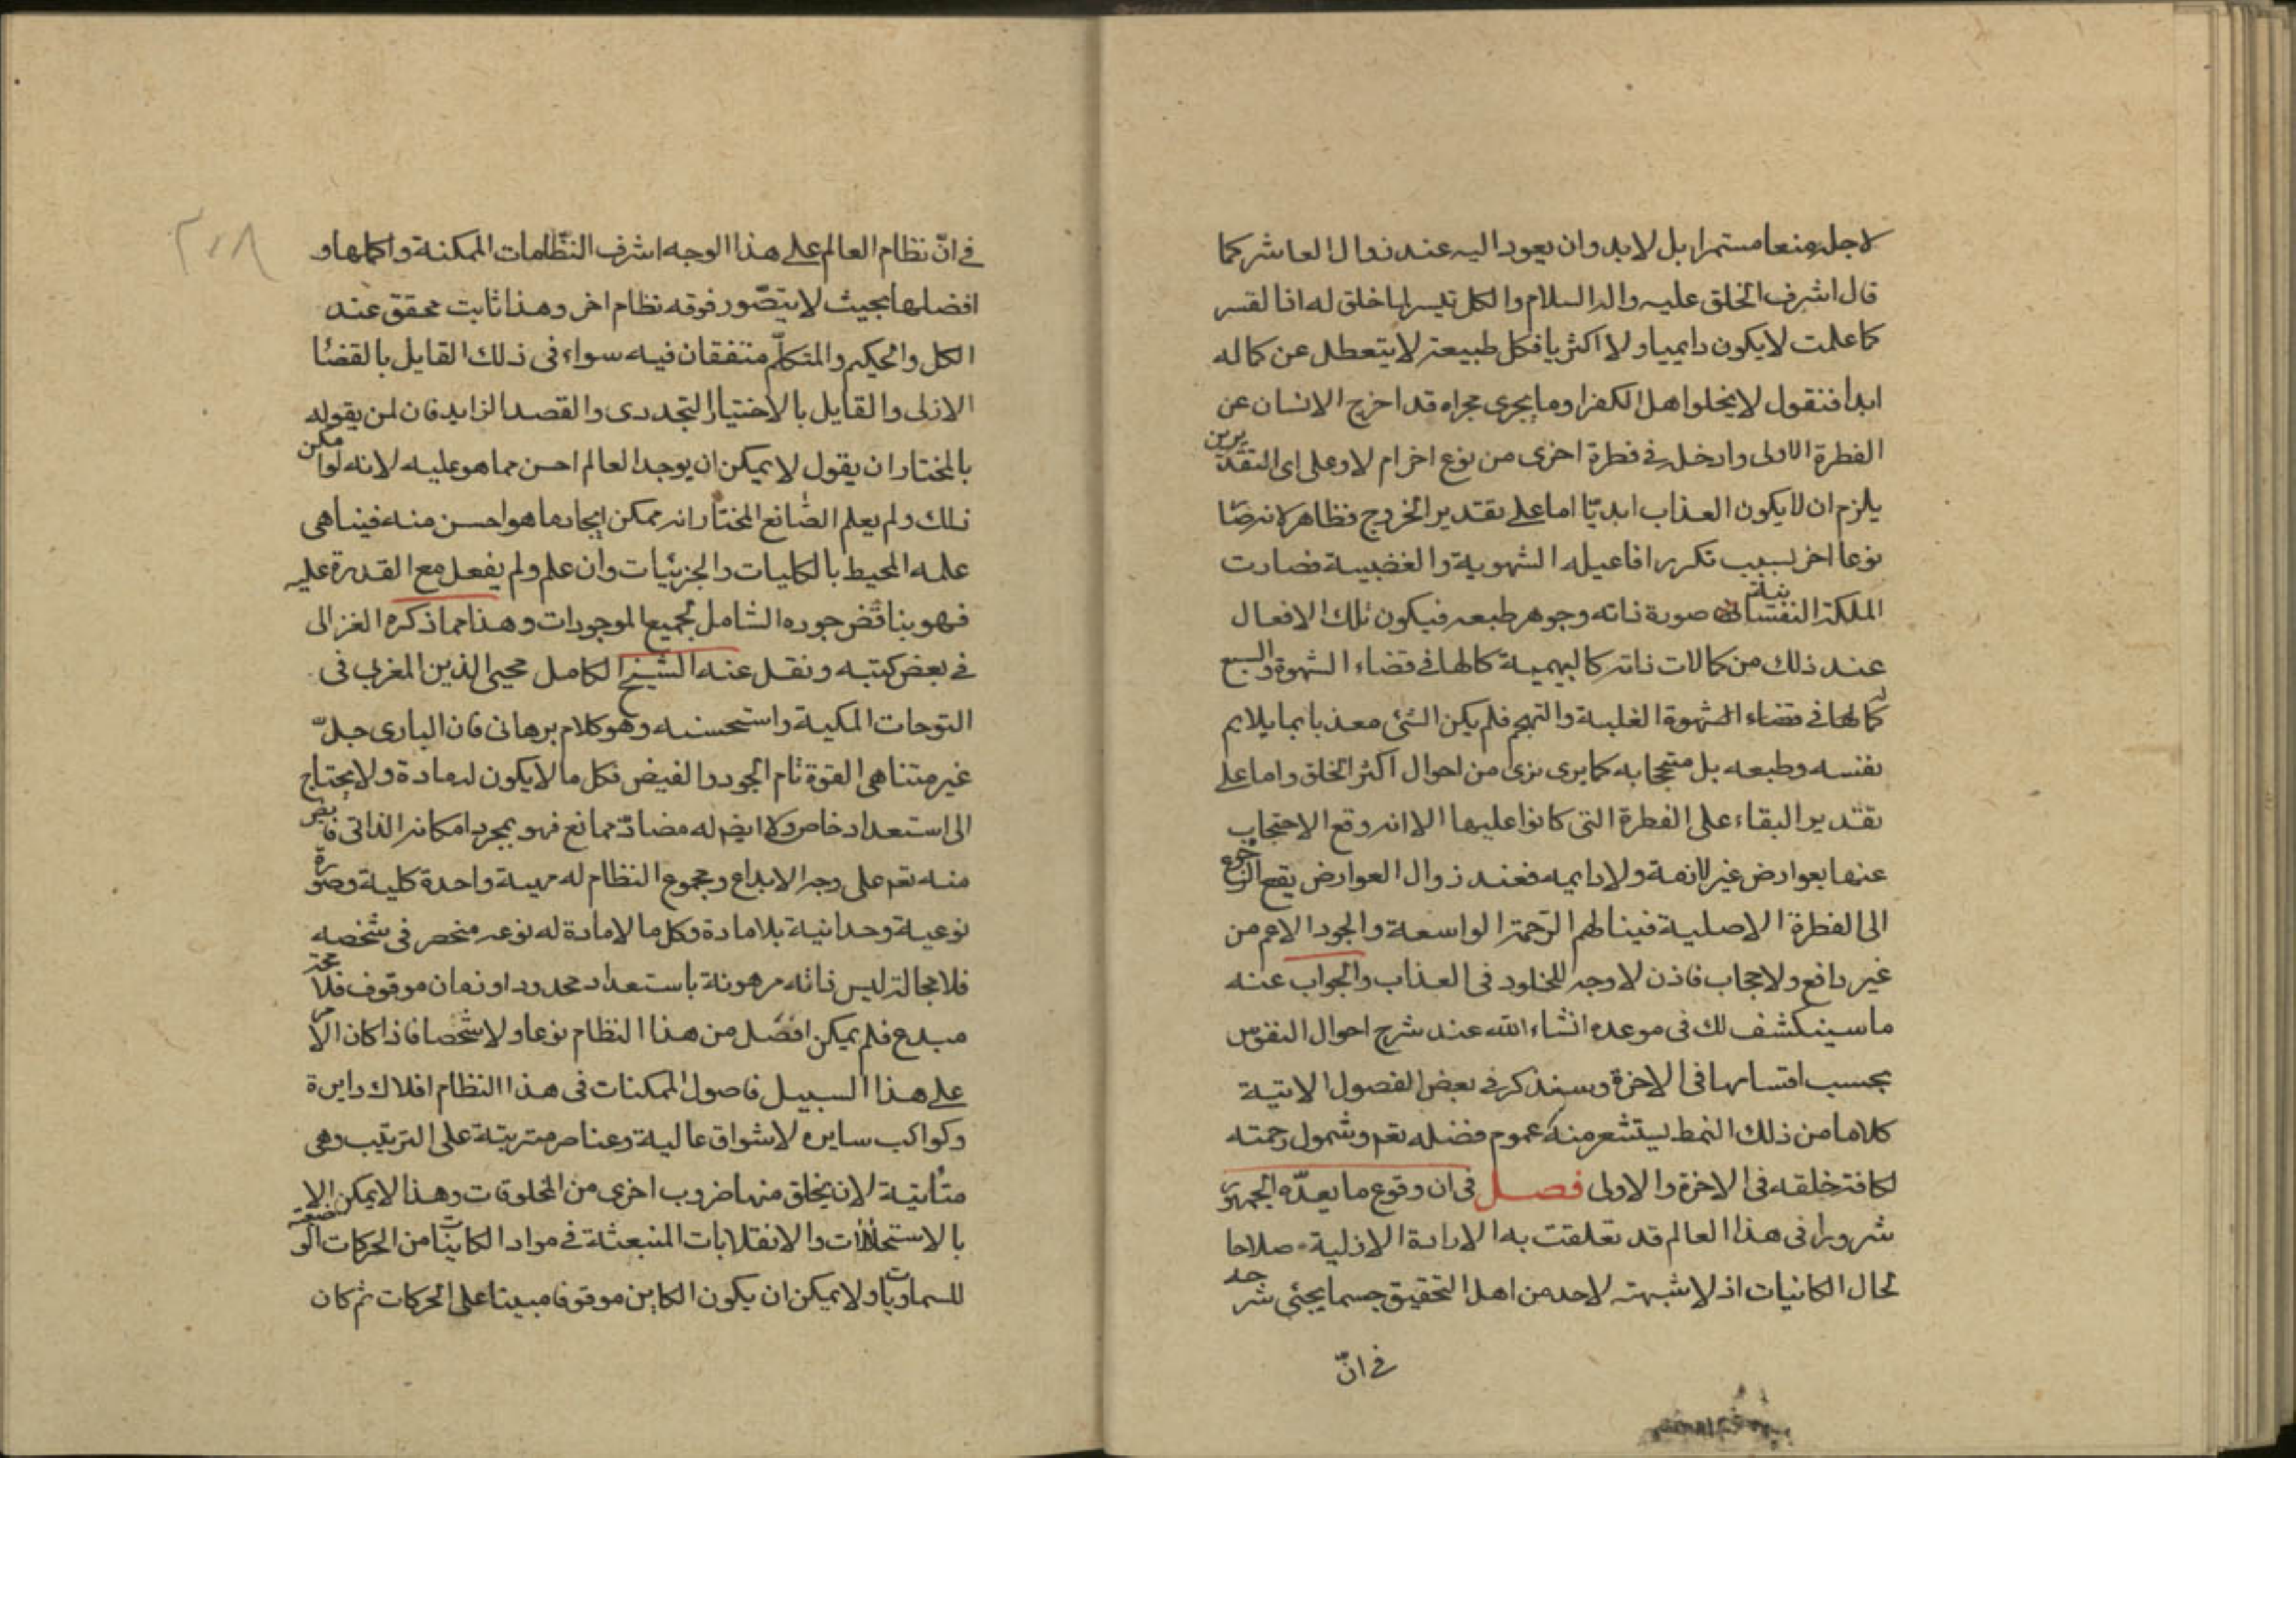 لاجله منعا مستمرا بل لابد وان يعود اليه عند زوال العاشر كما
قال اشرف الخلق عليه واله السلام والكل تيسر لما خلق له اذا لقسر
كما علمت لا يكون دايميا ولا اكثريا فكل طبيعة لا يتعطل عن كماله
ابدا فنقول لا يخلوا هل الكفر او ما يجرى مجراه قد اخرج الانسان عن
الفطرة الاولى وادخل في فطرة اخرى من نوع اخر ام لا وعلى اى التقديرين
يلزم ان لا يكون العذاب ابديّا اما على تقدير الخروج فظاهر لانه صا
نوعا اخر بسبب تكرر افاعيله الشهوية والغضبية فصارت
الملكة النفسانية صورة ذاته وجوهر طبعه فيكون تلك الافعال
عند ذلك من كمالات ذاته كالبهيمية كمالها في قضاء الشهوة والسبع
كمالها في قضاء الشهوة الغلبة والتهجم فلم يكن الشئ معذبا بما يلايم
نفسه وطبعه بل متبجحا به كما يرى نرى من احوال اكثر الخلق واما على
تقدير البقاء على الفطرة التى كانوا عليها الا انه وقع الاحتجاب
عنها بعوارض غير لازمة ولا دايميه فعند زوال العوارض يقع الرجوع
الى الفطرة الاصلية فينالهم الرّحمة الواسعة والجود الاعم من
غير دافع ولا حجاب فاذن لا وجه للخلود في العذاب والجواب عنه
ما سينكشف لك فى موعده انشاء الله عند شرح احوال النفوس
بحسب اقسامها فى الاخرة وسنذكر في بعض الفصول الاتية
كلاما من ذلك النمط يستشعر منه عموم فضله تعم وشمول رحمته
لكافة خلقه فى الاخرة والاولى فصل فى ان وقوع ما يعدّه الجمهور
شرورا فى هذا العالم قد تعلقت به الارادة الازلية صلاحا
لحال الكانيات اذ لا شبهة لاحد من اهل التحقيق حسما يجئى شرحه
في انّ
في انّ نظام العالم على هذا الوجه اشرف النظّامات الممكنة واكملها و
افضلها بحيث لا يتصّور فوقه نظام اخر وهذا ثابت محقق عند
الكل والحكيم والمتكلّم متفقان فيه سواء فى ذلك القايل بالقضا
الازلى والقايل بالاختيار التجددى والقصد الزايد فان لمن يقوله
بالمختار ان يقول لا يمكن ان يوجد العالم احسن مما هو عليه لانه لو امكن
ذلك ولم يعلم الصّانع المختار انه ممكن ايجاد ما هو احسن منه فيناهى
علمه المحيط بالكليات والجزئيات وان علم ولم يفعل مع القدرة عليه
فهو يناقض جوده الشامل لجميع الموجودات وهذا مما ذكره الغزالى
في بعض كتبه ونقل عنه الشيخ الكامل محيى الدين المغربى فى
التوحات المكية واستحسنه وهو كلام برهانى فان البارى جلّ
غير متناهى القوة تام الجود والفيض فكل ما لا يكون له مادة ولا يحتاج
الى استعداد خاص ولا ايضم له مضادّ ممانع فهو بمجرد امكانه الذاتى فايض
منه تعم على وجه الابداع ومجموع النظام له مهية واحدة كلية وصورة
نوعية وحدانية بلا مادة وكل ما لا مادة له نوعه منحصر فى شخصه
فلا محالة ليس ذاته مرهونة باستعداد محدود او زمان موقوف فلا محة
مبدع فلم يمكن افضل من هذا النظام نوعا ولا شخصا فاذا كان الامر
على هذا السبيل فاصول الممكنات فى هذا النظام افلاك دايرة
وكواكب سايره لاشواق عالية وعناصر مترتبة على الترتيب وهى
متأتية لان يخلق منها ضروب اخرى من المخلوقات وهذا لا يمكن الا
بالاستحالات والانقلابات المنبعثة في مواد الكاينات من الحركات الوضعية
للسماويات ولا يمكن ان يكون الكاين موقوفا مبينا على الحركات ثم كان